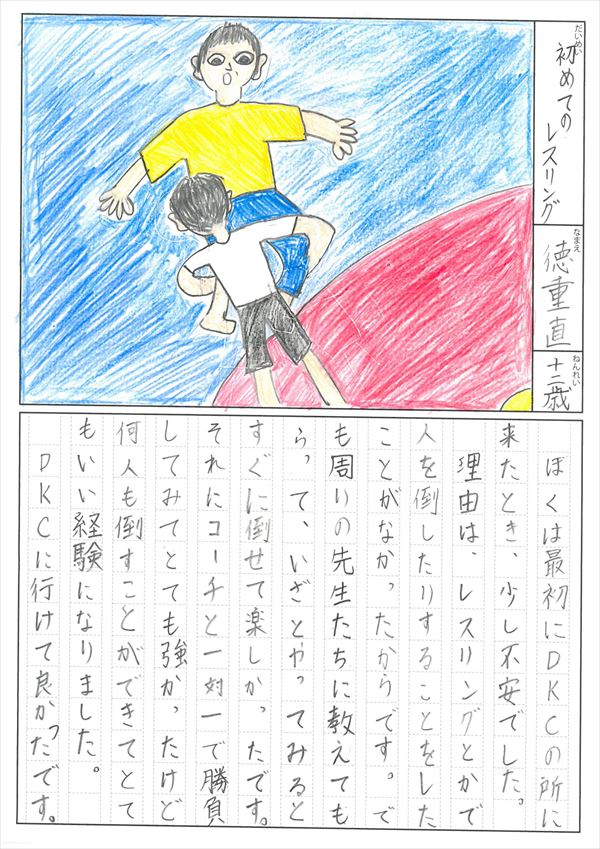 だいめい
初めてのレスリング
なまえ
徳重直
ねんれい
十二歳
ぼくは最初にDKCの所に
来たとき、少し不安でした。
理由は、レスリングとかで
人を倒したりすることをした
ことがなかったからです。で
も周りの先生たちに教えても
らって、いざとやってみると
すぐに倒せて楽しかったです。
それにコーチと一対一で勝負
してみてとても強かったけど
何人も倒すことができてとて
もいい経験になりました。
DKCに行けて良かったです。